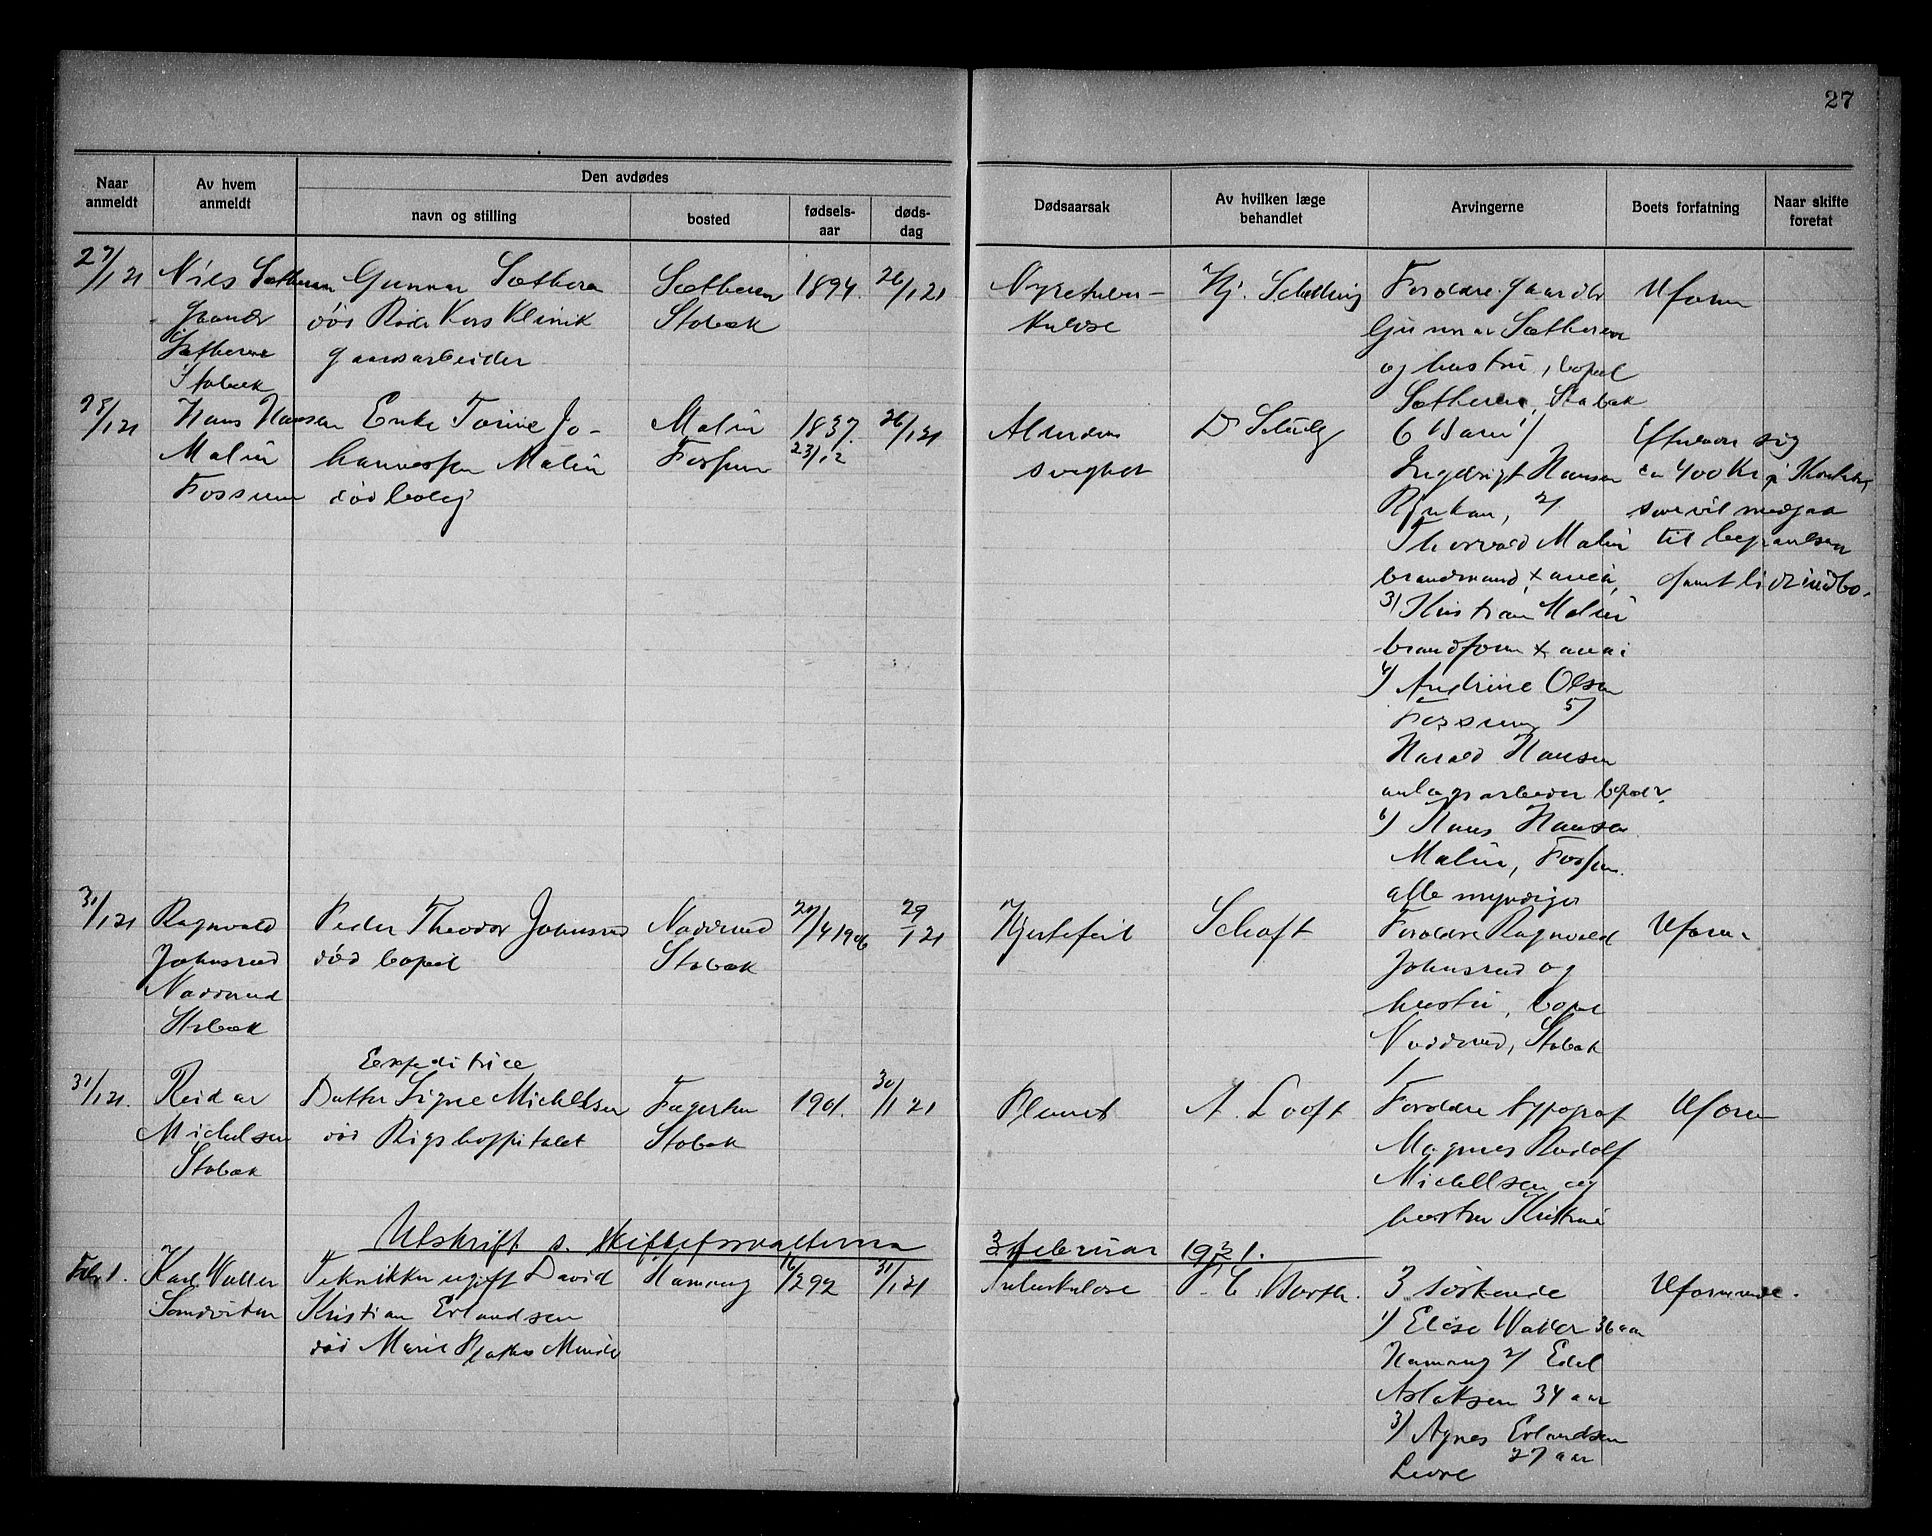 27
Naar anmeldt
Av hvem anmeldt
Den avdødes
navn og stilling
bosted
fødsels-aar
døds-dag
Dødsaarsak
Av hvilken læge behandlet
Arvingerne
Boets forfatning
Naar skifte foretat
27/1 21
Niels Sætheren
Sætheren
Stabæk
Gunnar Sætheren
død Røde Kors Klinik
gaardsarbeider
Sætheren
Stabæk
1894.
26/1 21
Nyretuber-
kulose
Hj. Schelling
Forældre gaardbr
Gunnar Sætheren
og hustru, bopæl
Sætheren, Stabæk
Uform
28/1 21
Hans Hansen
Malin
Fossum
Enke Torine Jo-
hannessen Malin
død bolig
Malin
Fossum
1837.
23/12
26/1 21
Alderdoms
svaghet
Dr
6 barn 1/
Ingebrigt Hansen
Rjukan, 2/
Thorvald Malin
brandmand
3/ Kristian Malin
brandform
4/ Andrine Olsen
Fossum 5/
Harald Hansen
anlægsarbeider
6/ Hans Hansen
Malin, Fossum.
alle myndige
Efterlater sig
ca 400 Kr i Kontanter
som vil medgaa
til begravelsen
samt lidt indbo.
31/1 21
Ragnvald
Johnsrud
Nadderud
Stabæk
Peder Theodor Johnsrud
død bopæl
Nadderud
Stabæk
/4 1906
29/1 21
Hjertefeil
Schøft
Forældre Ragnvald
Johnsrud og
hustru, bopæl
Nadderud, Stabæk
Uform
31/1 21.
Reidar
Michelsen
Stabæk
Expeditrice
Datter Signe Michelsen
død Rigshospitalet
Stabæk
1901.
30/1 21
A. Looft
Forældre typograf
Magnus Rudolf
Michelsen og
hustru Kristine
Uform
Utskrift s. skifteforvalterna 3 februar 1921.
Febr 1.
Karl Waller
Sandviken
Tekniker ugift David
Kristian Erlandsen
død Marie Plathes Minde
Hamang
16/2 92
31/1 21
Tuberkulose
P. C. Barth.
3 søskende
1/ Elise Waller 36 aar
Hamang 2/ Edel
Aslaksen 34 aar
3/ Agnes Erlandsen
27 aar
Uformuende.